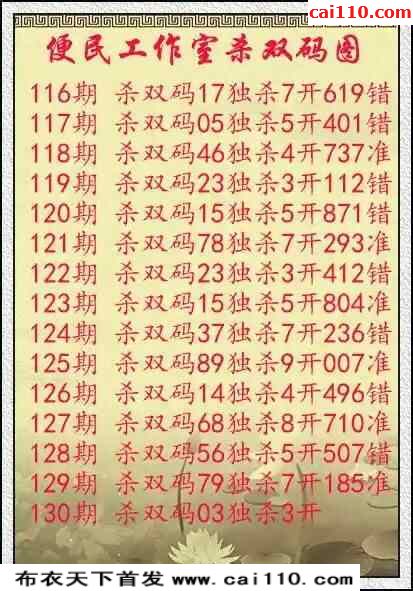 cai110.com
便民工作室杀双码图
116期 杀双码17独杀7开619错
117期 杀双码05独杀5开401错
118期 杀双码46独杀4开737准
119期 杀双码23独杀3开112错
120期 杀双码15独杀5开871错
121期 杀双码78独杀7开293准
122期 杀双码23独杀3开412错
123期 杀双码15独杀5开804准
124期 杀双码37独杀7开236错
125期 杀双码89独杀9开007准
126期 杀双码14独杀4开496错
127期 杀双码68独杀8开710准
128期 杀双码56独杀5开507错
129期 杀双码79独杀7开185准
130期 杀双码03独杀3开
布衣天下首发 www.cai110.com